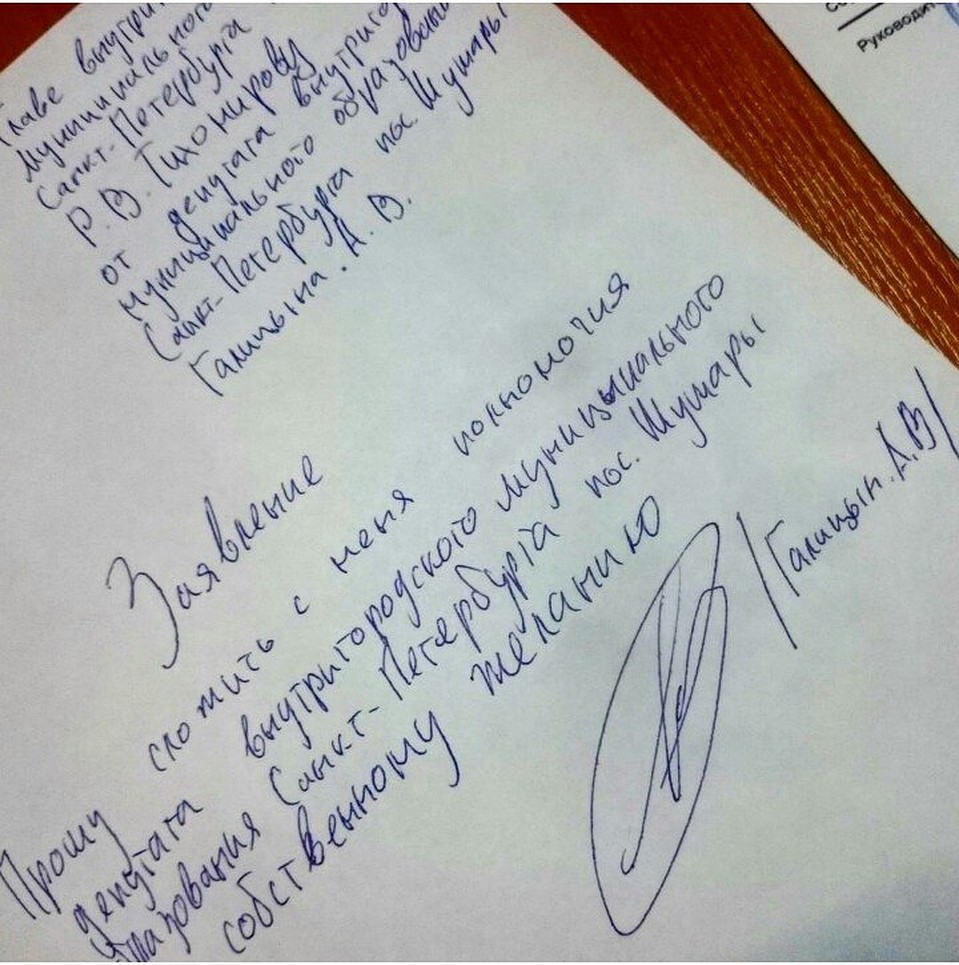 Главе внутри
муниципального
Санкт-Петербурга
Р. В. Тихомирову
от депутата внутриг
муниципального образован
Санкт-Петербурга пос. Шушары
Галицына. А. В.
Заявление
Прошу сложить с меня полномочия
депутата внутригородского муницыпального
образования Санкт-Петербурга пос. Шушары
собственному желанию
/Галицын. А. В/
Руководит